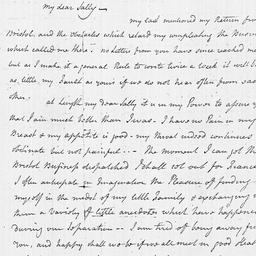 my dear Sally —
my last mentioned my Return from
Bristol, and the obstacles which retard my compleating the Business
which called me there. no Letter from you have since reached me
but as I make it a general Rule to write twice a week it will be
as little my Fault as yours if we do not hear often from each
other.
at length my Dear Sally it is in my Power to assure you
that I am much better than I was. I have no Pain in my
Breast & my appetite is good — my throat indeed continues
but not painful — The moment I can get the
Bristol Business dispatched I shall set out for France
I often anticipate in Imagination the Pleasure of finding
myself in the midst of my little Family & exchanging with
them a Variety of little anecdotes which have happened
during our Separation — I am tired of being away from
you, and happy shall we be if we all meet in good Health